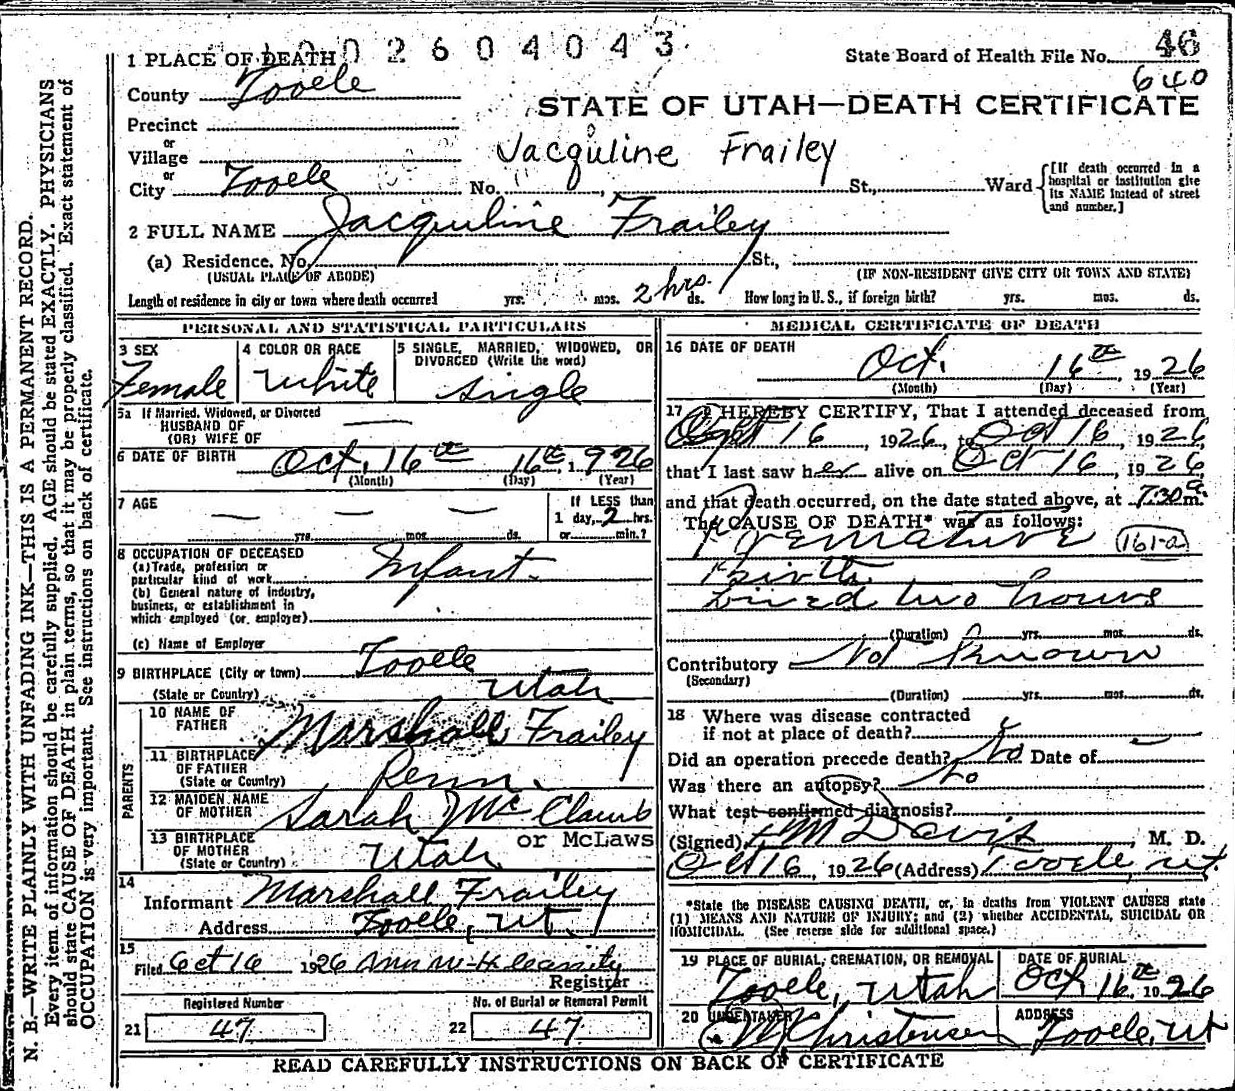 1002604043
1 PLACE OF DEATH
State Board of Health File No. 46
640
County Tooele
STATE OF UTAH—DEATH CERTIFICATE
Precinct
or
Village
Jacquline Frailey
or
City Tooele No. , St., Ward [If death occurred in a hospital or institution give its NAME instead of street and number.]
2 FULL NAME Jacquline Frailey
(a) Residence, No. St.,
(USUAL PLACE OF ABODE) (IF NON-RESIDENT GIVE CITY OR TOWN AND STATE)
Length of residence in city or town where death occurred yrs. mos. 2 hrs. ds. How long in U. S., if foreign birth? yrs. mos. ds.
PERSONAL AND STATISTICAL PARTICULARS
3 SEX
Female
4 COLOR OR RACE
White
5 SINGLE, MARRIED, WIDOWED, OR
DIVORCED (Write the word)
Single
5a If Married, Widowed, or Divorced
HUSBAND OF
(OR) WIFE OF —
6 DATE OF BIRTH Oct. 16th 16th, 1926
(Month) (Day) (Year)
7 AGE — — —
yrs. mos. ds.
If LESS than
1 day, 2 hrs.
or min.?
8 OCCUPATION OF DECEASED
(a) Trade, profession or
particular kind of work Infant
(b) General nature of industry,
business, or establishment in
which employed (or employer)
(c) Name of Employer
9 BIRTHPLACE (City or town) Tooele
(State or Country) Utah
PARENTS
10 NAME OF
FATHER Marshall Frailey
11 BIRTHPLACE
OF FATHER
(State or Country) Penn.
12 MAIDEN NAME
OF MOTHER Sarah McClaub
or McLaws
13 BIRTHPLACE
OF MOTHER
(State or Country) Utah
14
Informant Marshall Frailey
Address Tooele, Ut.
15
Filed Oct 16 1926
Registrar
Registered Number
21 47
No. of Burial or Removal Permit
22 47
MEDICAL CERTIFICATE OF DEATH
16 DATE OF DEATH
Oct. 16th, 1926
(Month) (Day) (Year)
17 I HEREBY CERTIFY, That I attended deceased from
16, 1926, to Oct 16, 1926
that I last saw her alive on Oct 16, 1926
and that death occurred, on the date stated above, at 7:30 a m.
The CAUSE OF DEATH* was as follows:
Premature (161-a)
Birth
Lived two hours
(Duration) yrs. mos. ds.
Contributory Not Known
(Secondary)
(Duration) yrs. mos. ds.
18 Where was disease contracted
if not at place of death?
Did an operation precede death? No Date of —
Was there an autopsy? No
What test confirmed diagnosis?
(Signed) M Davis, M. D.
Oct 16, 1926 (Address) Tooele, Ut.
*State the DISEASE CAUSING DEATH, or, in deaths from VIOLENT CAUSES state
(1) MEANS AND NATURE OF INJURY; and (2) whether ACCIDENTAL, SUICIDAL OR
HOMICIDAL. (See reverse side for additional space.)
19 PLACE OF BURIAL, CREMATION, OR REMOVAL
Tooele, Utah
DATE OF BURIAL
Oct 16th 1926
20 UNDERTAKER
M Christensen
ADDRESS
Tooele, Ut
READ CAREFULLY INSTRUCTIONS ON BACK OF CERTIFICATE
N. B.—WRITE PLAINLY WITH UNFADING INK—THIS IS A PERMANENT RECORD.
Every item of information should be carefully supplied. AGE should be stated EXACTLY. PHYSICIANS
should state CAUSE OF DEATH in plain terms, so that it may be properly classified. Exact statement of
OCCUPATION is very important. See instructions on back of certificate.